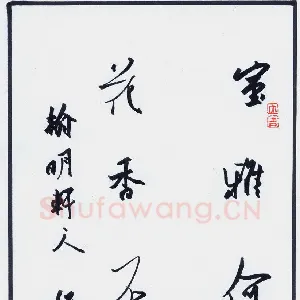 室雅何
花香不
榆明轩人
Shufawang.CN